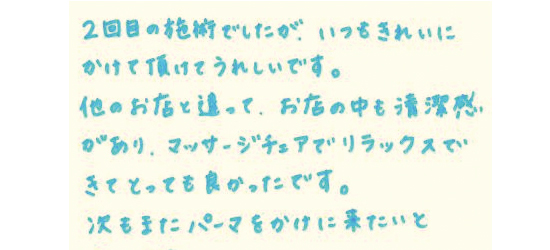 2回目の施術でしたが、いつもきれいに
かけて頂けてうれしいです。
他のお店と違って、お店の中も清潔感
があり、マッサージチェアでリラックスで
きてとっても良かったです。
次もまたパーマをかけに来たいと